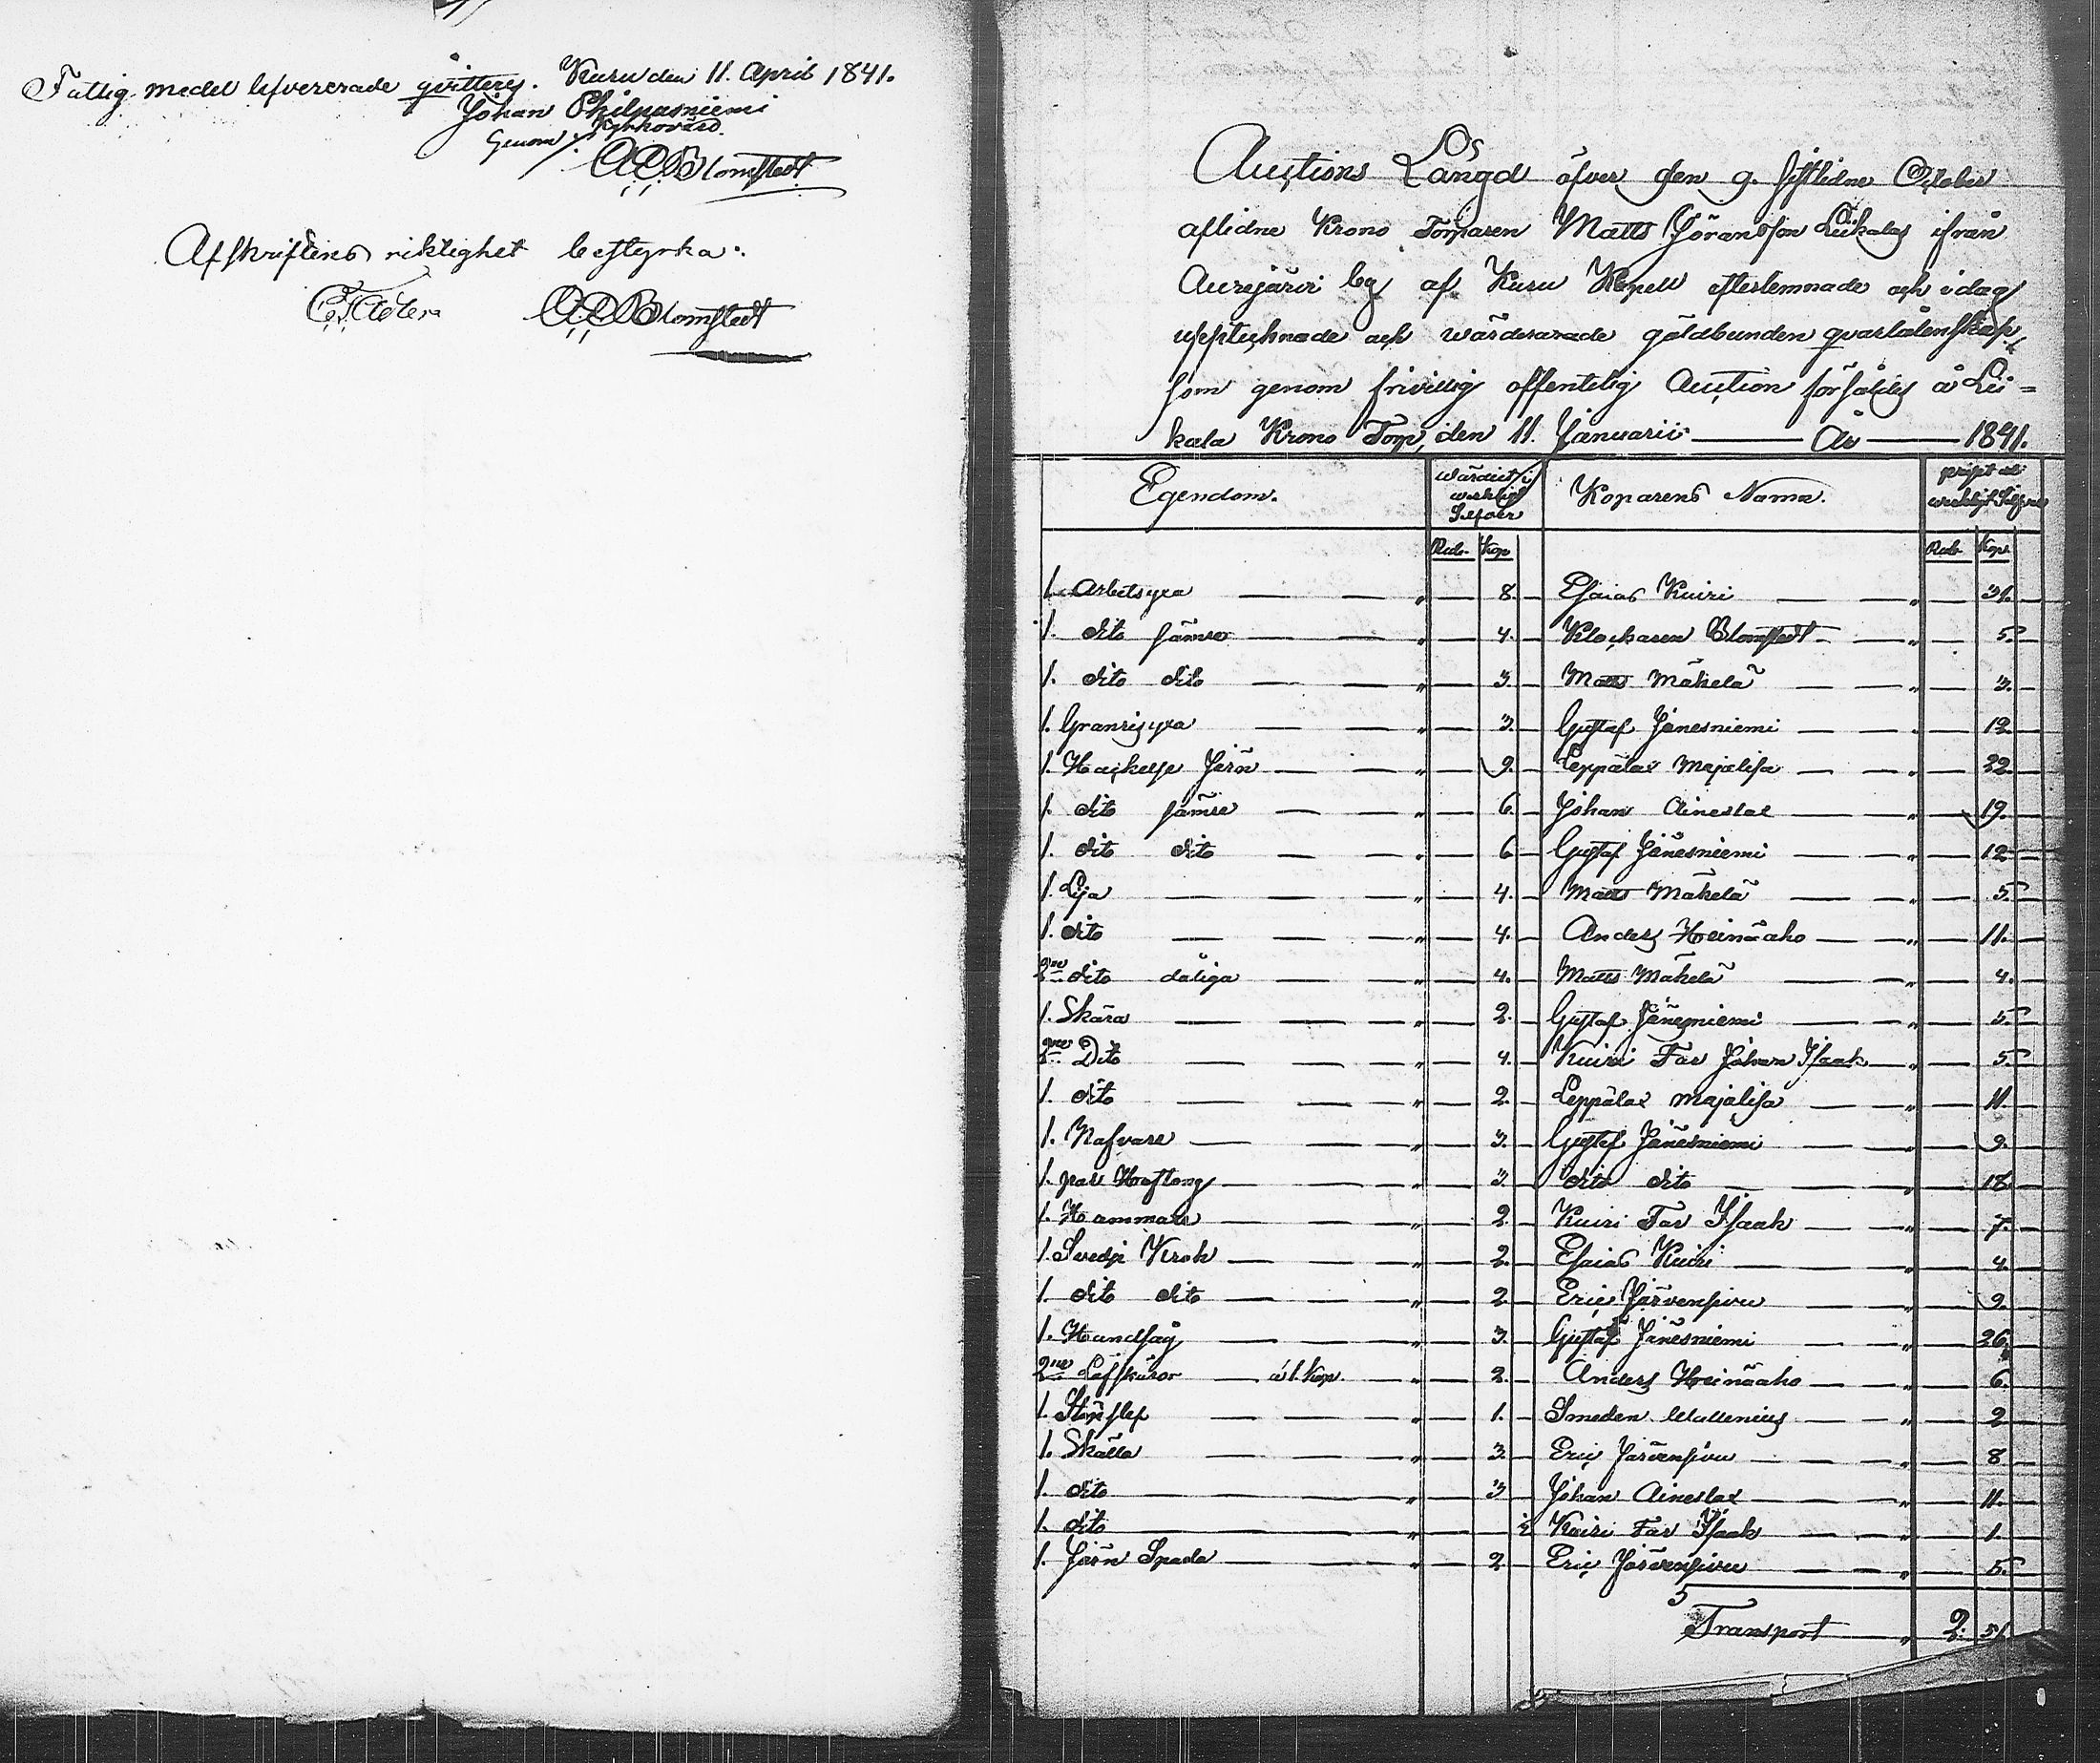 Fattig medel lefvererade qvitteres. Kuru den 11. April 1841.
Johan Philpusniemi
Kyrkovärd.
Genom
A E Blomstedt
Afskriftens riktighet bestyrka:
A E Blomstedt
Auctions Längd öfver den 9. sistlidne October
aflidne Krono Torparen Matts Göransson Liikalas ifrån
Aurejärvi by af Kuru Kapell efterlemnade och i dag
upptecknade och wärderarade gäldbunden qvarlåtenskap,
som genom frivillig offentelig Auction försåldes å Lii=
kala Krono Torp, den 11. Januarii — År — 1841.
Egendom. wärdert i werkligt Silfver Köparens Namn.
Rub. Kop Rub. Kop.
1. Arbetsyxa — — " — 8. Esaias Kuiri — — " — 31.
1. dito sämre — — " — 4. Klockaren Blomstedt — " — 5.
1. dito dito — — " — 3. Matts Mäkelä — — " — 3.
1. Granrisyxa — — " — 3. Gustaf Jänesniemi — — " — 12.
1. Hackelse Järn — — " — 9. Leppälax Majalisa — — " — 22.
1. dito sämre — — " — 6. Johan Aineslax — " — 19.
1. dito dito — — " — 6 Gustaf Jänesniemi — — " — 12
1. Lia — — — " — 4. Matts Mäkelä — — " — 5.
1. dito — — — " — 4. Anders Heinäaho — — " — 11.
2ne dito dåliga — — " — 4. Matts Mäkelä — — " — 4.
1. Skära — — — " — 2. Gustaf Jänesniemi — — " — 5.
2ne Dito — — — " — 4. Kuiri Far Johan Isaak — " — 5.
1. dito — — — " — 2. Leppälax Majalisa — — " — 11.
1. Nafvare — — — " — 3. Gustaf Jänesniemi — — " — 9.
1. par Hoftång — — " — 3. dito dito — — " — 18.
1. Hammare — — — " — 2. Kuiri Far Isaak — — " — 7.
1. Svedje Krok — — — " — 2. Esaias Kuiri — — " — 4.
1. dito dito — — — " — 2 Eric Järvensivu — — " — 9.
1. Handsåg — — — " — 3. Gustaf Jänesniemi — — " — 26.
2ne Löfskäror — á 1. Kop. — " — 2. Anders Heinäaho — — " — 6.
1. — — — " — 1. Smeden Wallenius — — " — 2
1. Skälla — — — " — 3. Eric Järvensivu — — " — 8
1. dito — — — " — 3 Johan Aineslax — — " — 11.
1. dito — " — ½ Kuiri Far Isaak — — " — 1.
1. Järn Spada — — — " — 2 Eric Järvensivu — — " — 5.
Transport — " 2. 51